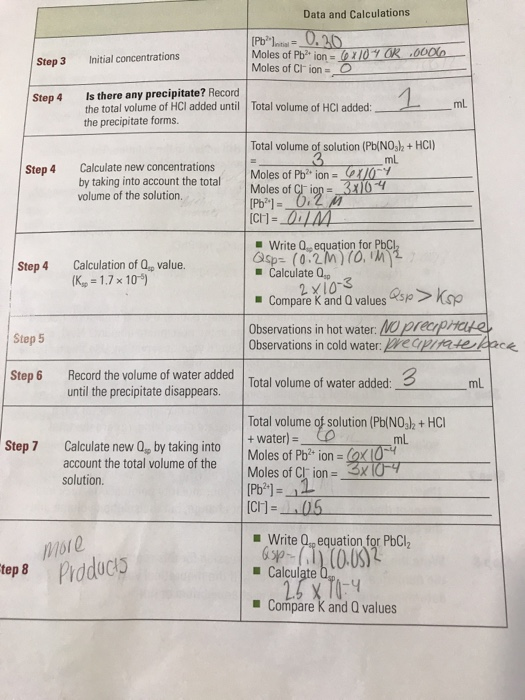 Data and Calculations
Step 3
Initial concentrations
[Pb²⁺]initial = 0.30
Moles of Pb²⁺ ion = 6x10⁻⁴ OR .0006
Moles of Cl⁻ ion = 0
Step 4
Is there any precipitate? Record
the total volume of HCl added until
the precipitate forms.
Total volume of HCl added: 1 mL
Step 4
Calculate new concentrations
by taking into account the total
volume of the solution.
Total volume of solution (Pb(NO₃)₂ + HCl)
= 3 mL
Moles of Pb²⁺ ion = 6x10⁻⁴
Moles of Cl⁻ ion = 3x10⁻⁴
[Pb²⁺] = 0.2 M
[Cl⁻] = 0.1M
Step 4
Calculation of Qsp value.
(Ksp = 1.7 × 10⁻⁵)
■ Write Qsp equation for PbCl₂
Qsp= (0.2M)(0.1M)²
■ Calculate Qsp
2x10⁻³
■ Compare K and Q values Qsp > Ksp
Step 5
Observations in hot water: NO precipitate
Observations in cold water: precipitate back
Step 6
Record the volume of water added
until the precipitate disappears.
Total volume of water added: 3 mL
Step 7
Calculate new Qsp by taking into
account the total volume of the
solution.
Total volume of solution (Pb(NO₃)₂ + HCl
+ water) = 6 mL
Moles of Pb²⁺ ion = 6x10⁻⁴
Moles of Cl⁻ ion = 3x10⁻⁴
[Pb²⁺] = .1
[Cl⁻] = .05
tep 8
more
Products
■ Write Qsp equation for PbCl₂
Qsp = (.1)(0.05)²
■ Calculate Qsp
2.5 x 10⁻⁴
■ Compare K and Q values